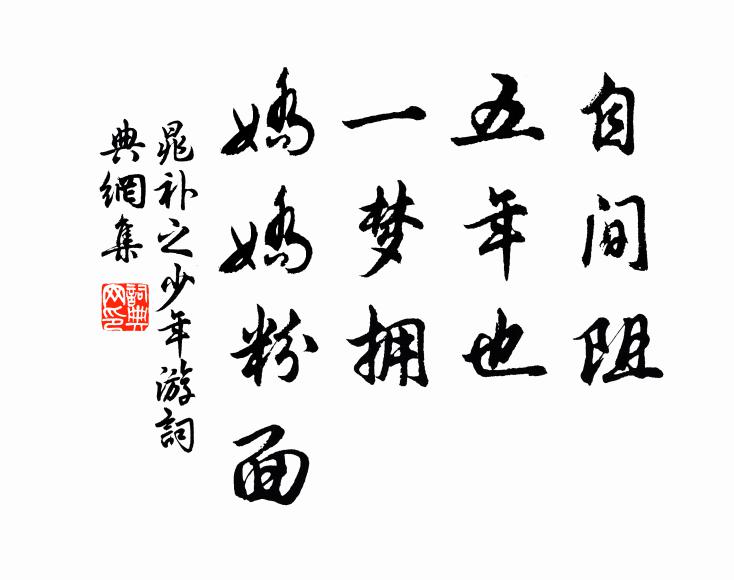 自间阻
五年也
一梦拥
娇娇粉面
晁补之少年游詞
典網集
詞典網印